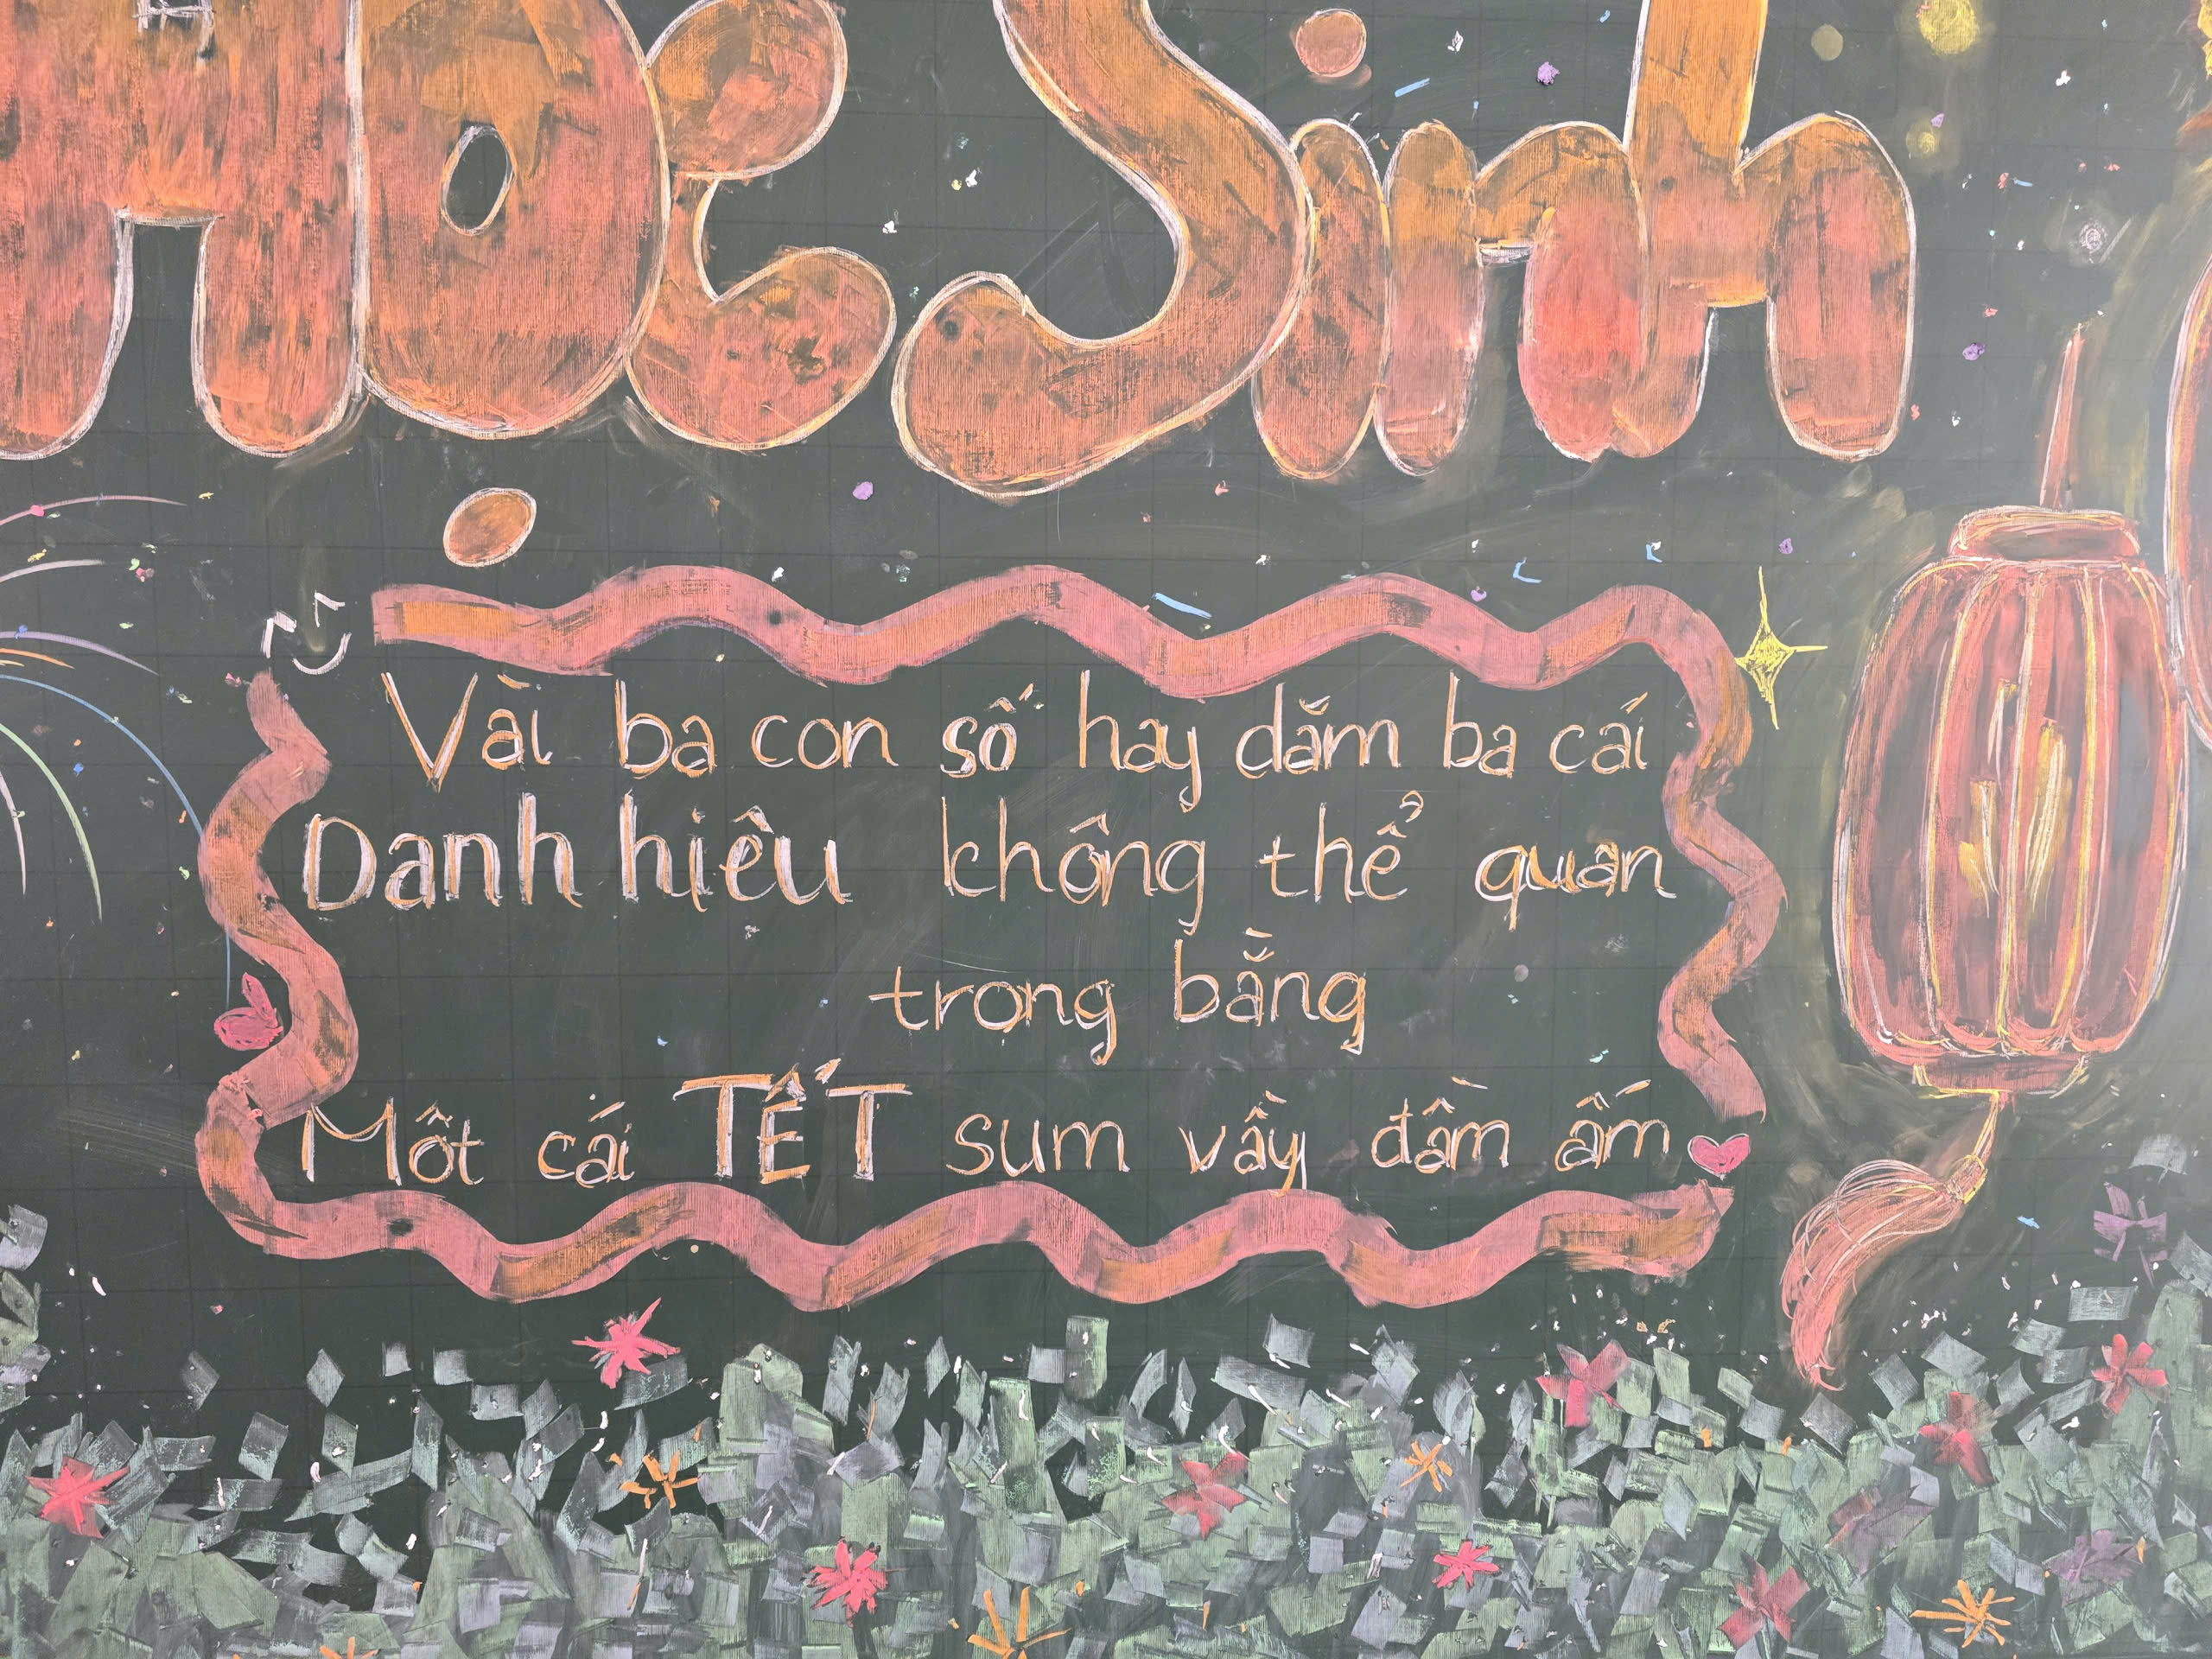 Học Sinh
Vài ba con số hay dăm ba cái
Danh hiêu không thể quan
trong bằng
Một cái TẾT sum vầy đầm ấm